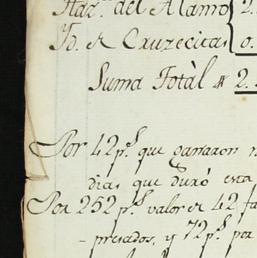 Haz.ª del Alamo 2.
Yd. de Cruzecitas 0.
Suma Totàl # 2.
Por 42 p.s que ganaron
dias que duró esta
Por 252 p.s valor de 42 fa
presados, y 72 p.s por